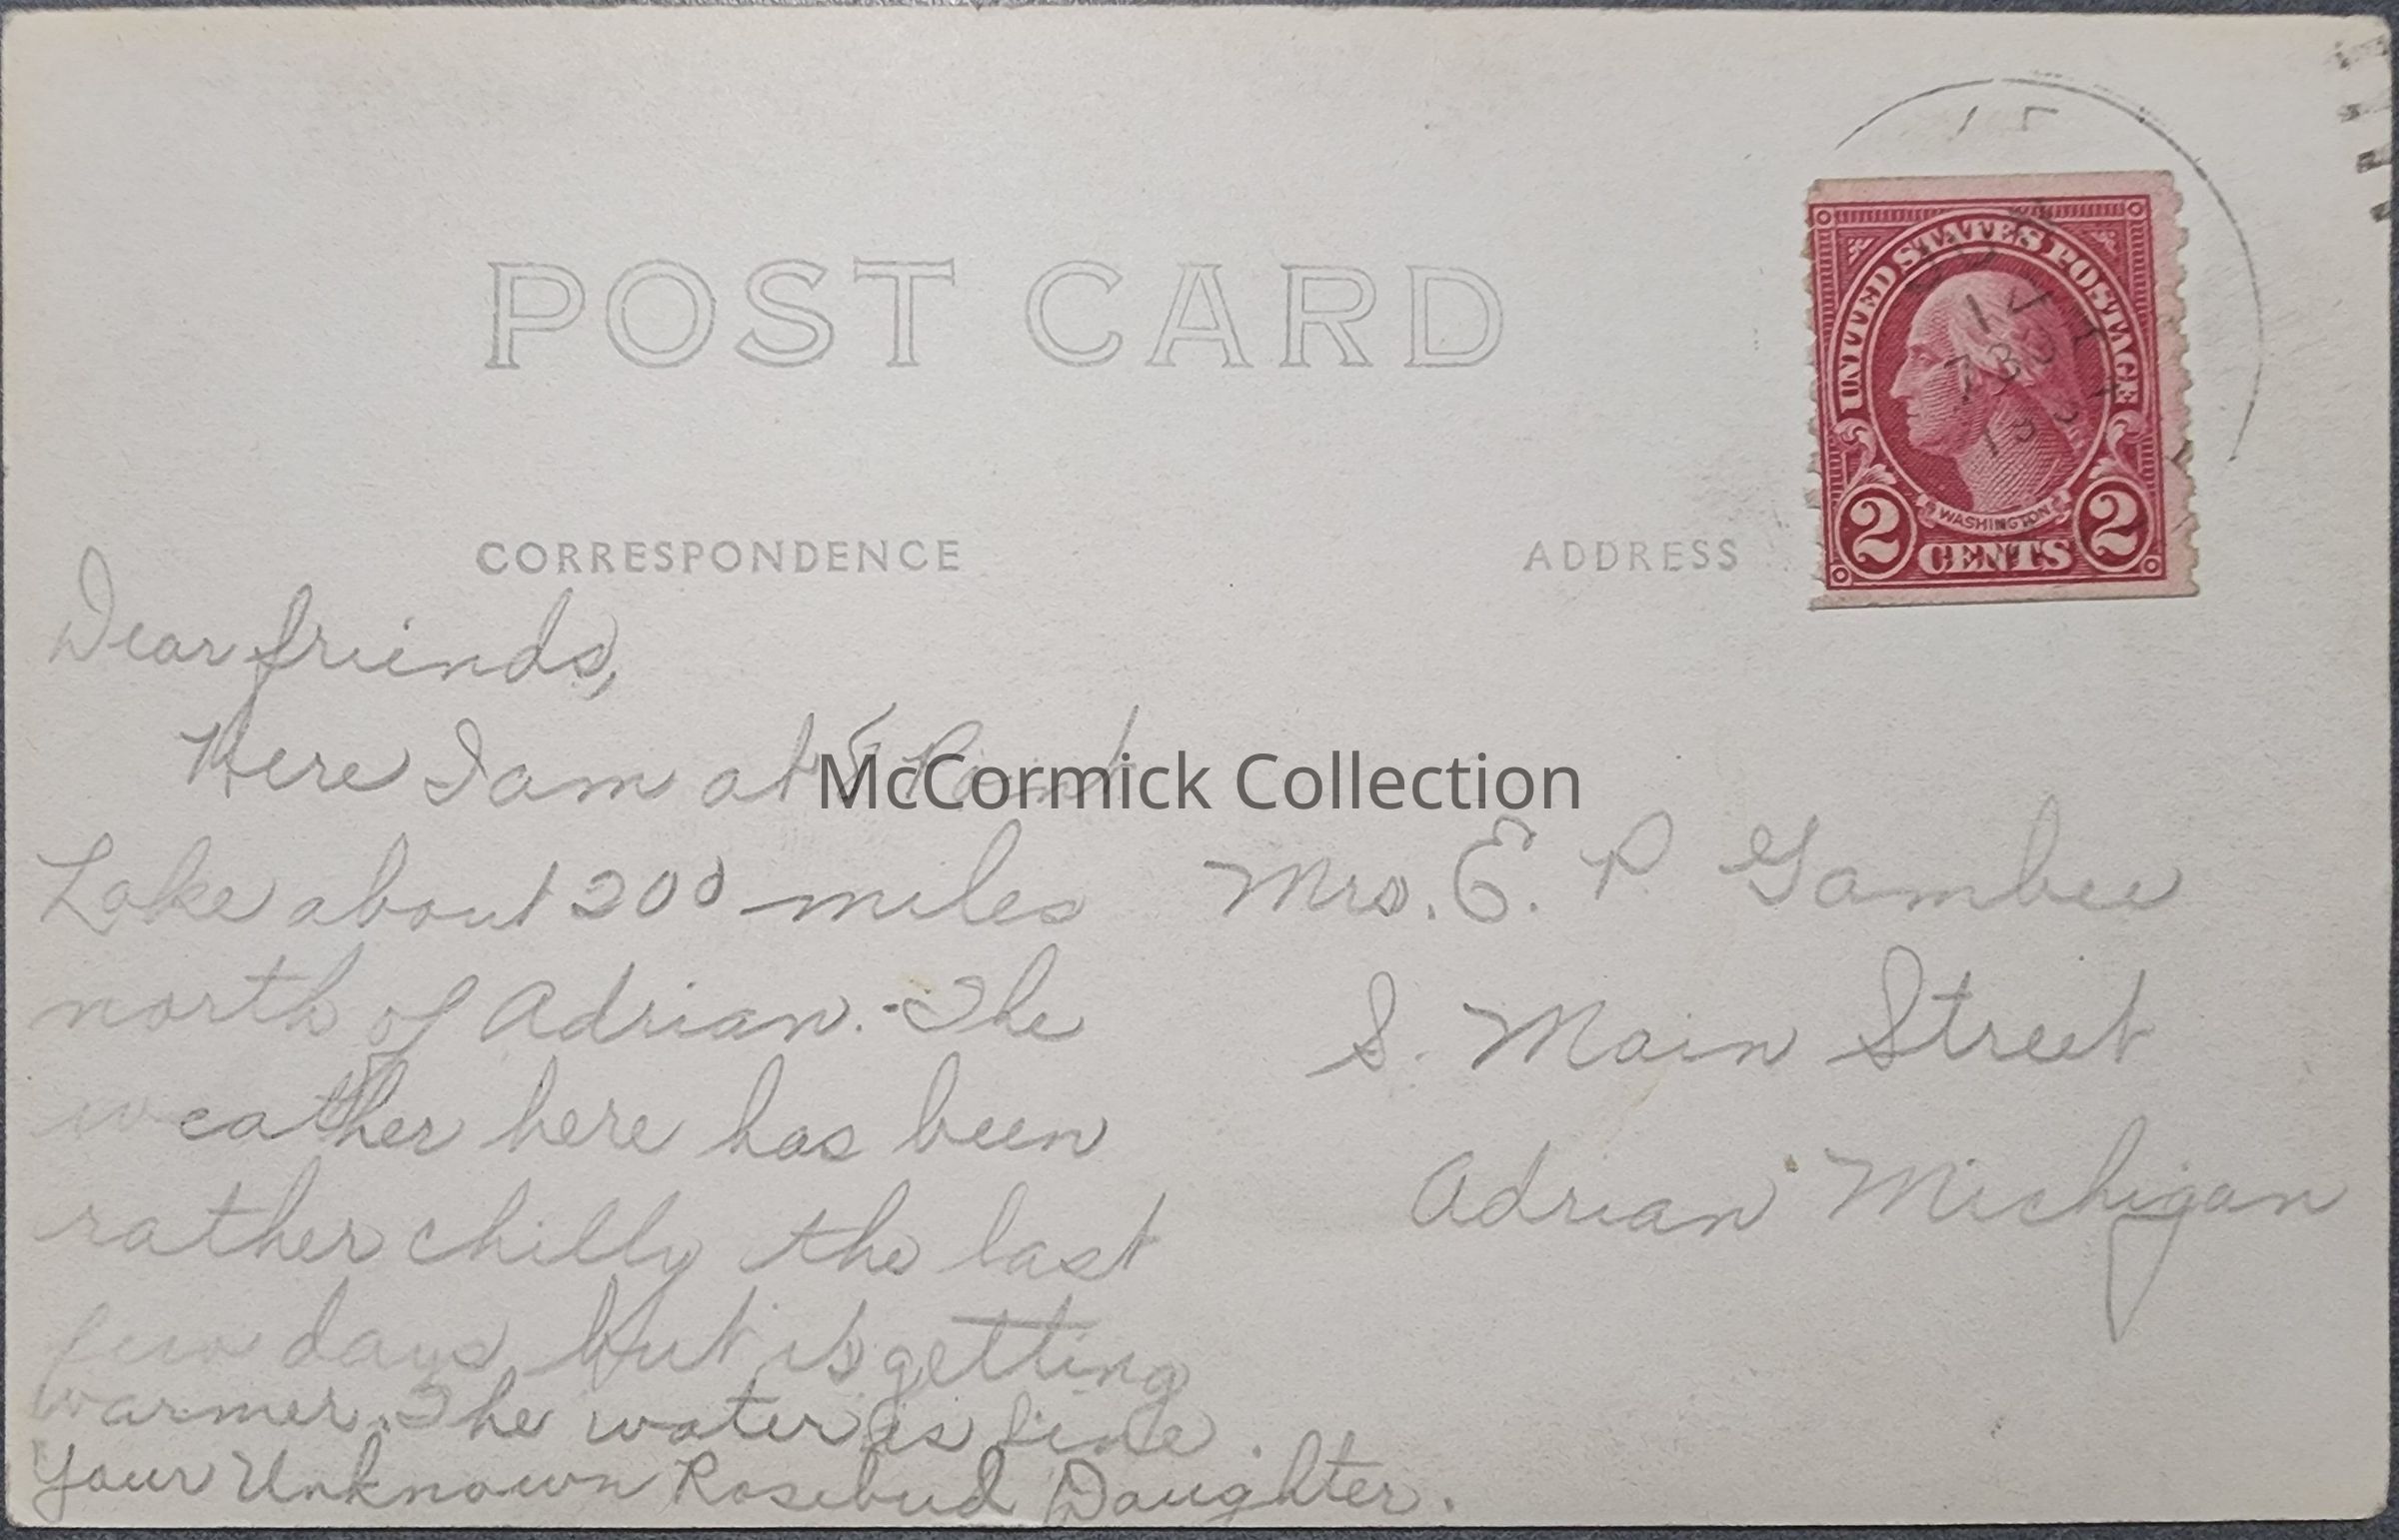 POST CARD
CORRESPONDENCE
ADDRESS
UNITED STATES POSTAGE
WASHINGTON
2 CENTS 2
12
730
193
Dear friends,
Here I am at
Lake about 200 miles
north of Adrian. The
weather here has been
rather chilly the last
few days, but is getting
warmer. The water is fine.
Your Unknown Rosebud Daughter.
McCormick Collection
Mrs. E. P. Gambee
S. Main Street
Adrian Michigan